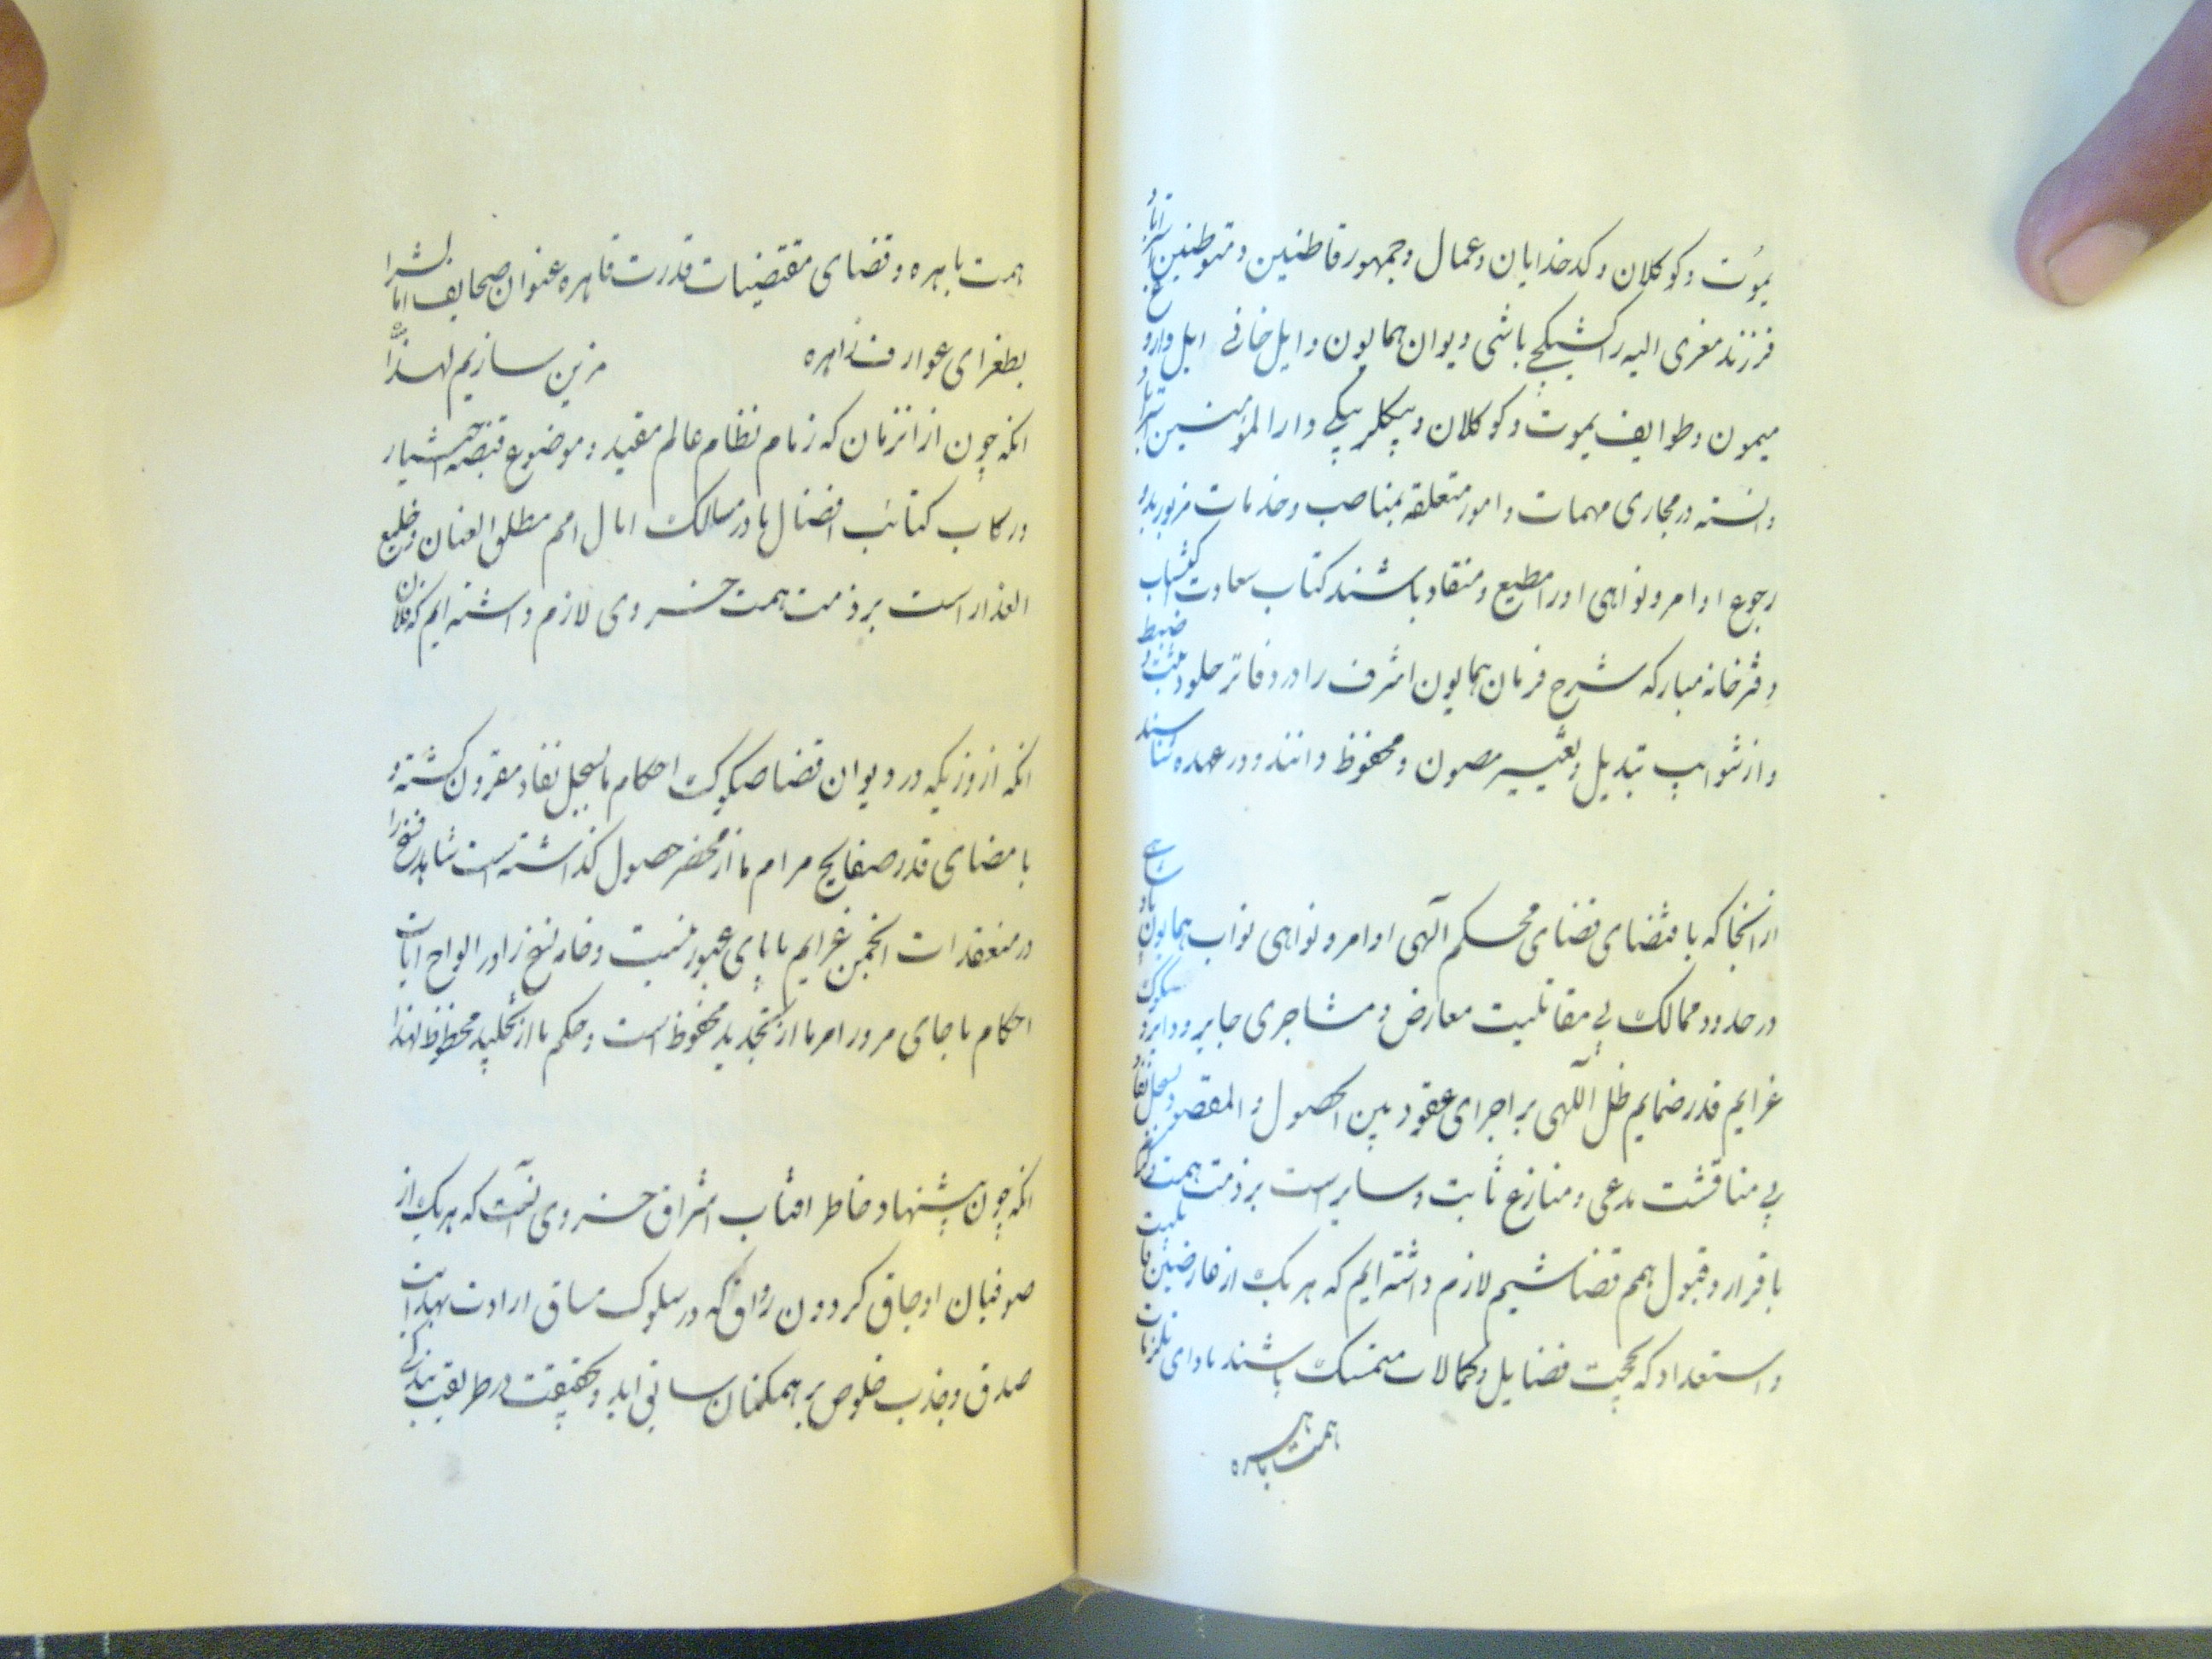 یموت و کوکلان و کدخدایان و عمال و جمهور قاطنین و متوطنین استراباد
فرزند معزی الیه را کشیکچی باشی دیوان همایون و ایل خانی ایل قاجار
میمون و طوایف یموت و کوکلان و بیکلربیکی دارالمؤمنین استراباد
دانسته در مجاری مهمات و امور متعلقه بمناصب و خدمات مزبوره بدو
رجوع اوامر و نواهی او را مطیع و منقاد باشند کتاب سعادت اکتساب
دفترخانه مبارکه شرح فرمان همایون اشرف را در دفاتر خلود ثبت و ضبط
و از شوایب تبدیل و تغییر مصون و محفوظ دانند و در عهده شناسند
از آنجا که باقتضای قضای محکم آلهی اوامر و نواهی نواب همایون
در حدود ممالک بی مقاتلیت معارض و مشاجری جایر و دایر و
عزایم قدر ضمایم ظل آللهی بر اجرای عقود بین الحصول و المقصود
بی مناقشت مدعی و منازع ثابت و سایر است بر ذمت همت
باقرار و قبول همم قضا شیم لازم داشته ایم که هر یک از عارضین قابلیت
و استعداد که بحجت فضایل و کمالات متمسک باشند بادای
همت باهره
همت باهره و قضای مقتضیات قدرت قاهره عنوان صحایف
بطغرای عوارف زاهره مزین سازیم لهذا
انکه چون از انزمان که زمام نظام عالم مقید و موضوع قبضه اختیار
در کاب کتائب افضال ما در مسالک امال امم مطلق العنان و خلیع
العذار است بر ذمت همت خسروی لازم داشته ایم که فلان
انکه از وزیکه در دیوان قضا صکوک احکام ما بسجل نفاد مقرون کشته و
بامضای قدر صفایح مرام ما از محضر حصول کذاشته است شاهد فسخ را
در منعقدات انجمن عزایم ما پای عبور نیست و خامه نسخ را در الواح ایات
احکام ما جای مرور امر ما از تجدید محفوظ است و حکم ما از تخلید محظوظ لهذا
انکه چون پیشنهاد خاطر افتاب اشراق خسروی انست که هر یک از
صوفیان اوجاق کردون رواق که در سلوک مساق ارادت بهدایت
صدق و جذب خلوص بر همکنان سابق اید و بحقیقت در طریقت بندکی